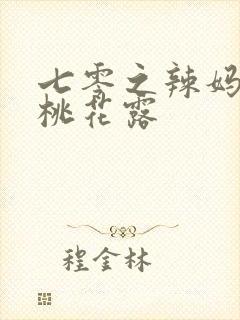 七零之辣妈
桃花露
程金林